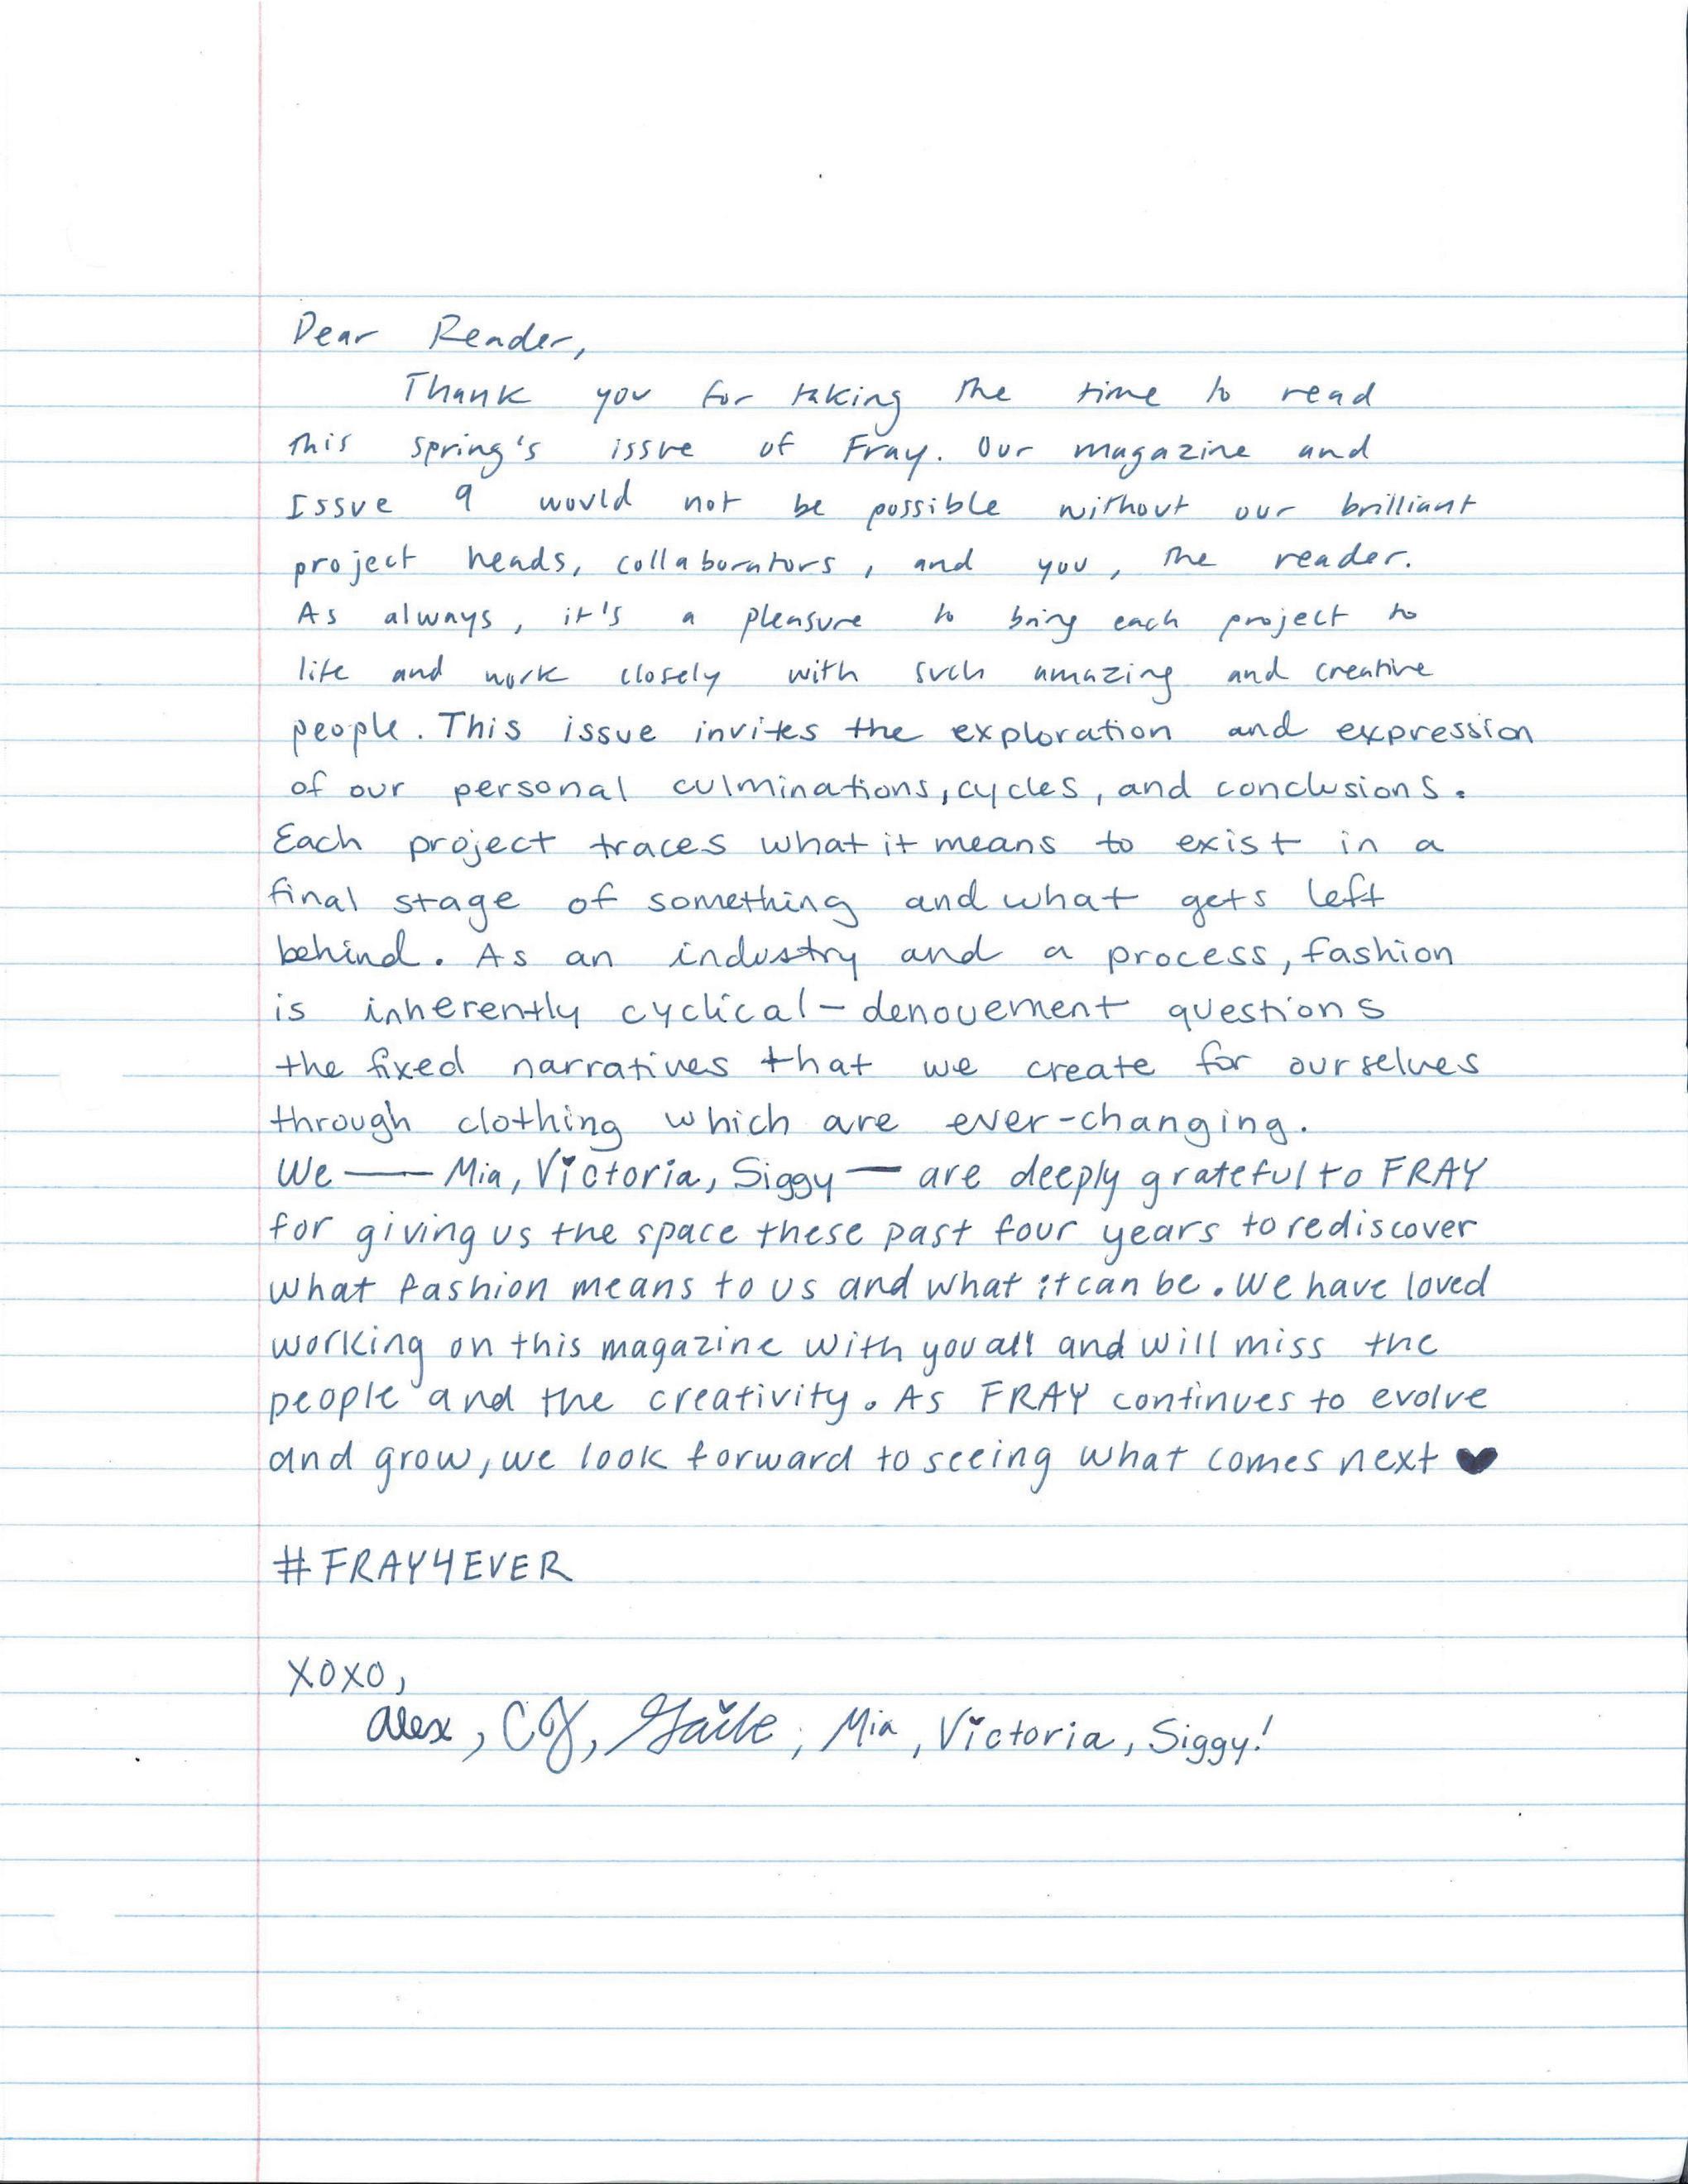 Dear Reader,
Thank you for taking the time to read
this spring's issue of Fray. Our magazine and
Issue 9 would not be possible without our brilliant
project heads, collaborators, and you, the reader.
As always, it's a pleasure to bring each project to
life and work closely with such amazing and creative
people. This issue invites the exploration and expression
of our personal culminations, cycles, and conclusions.
Each project traces what it means to exist in a
final stage of something and what gets left
behind. As an industry and a process, fashion
is inherently cyclical – denouement questions
the fixed narratives that we create for ourselves
through clothing which are ever-changing.
We — Mia, Victoria, Siggy — are deeply grateful to FRAY
for giving us the space these past four years to rediscover
what fashion means to us and what it can be. We have loved
working on this magazine with you all and will miss the
people and the creativity. As FRAY continues to evolve
and grow, we look forward to seeing what comes next ♥
#FRAY4EVER
XOXO,
Alex, CJ, Gaile, Mia, Victoria, Siggy!